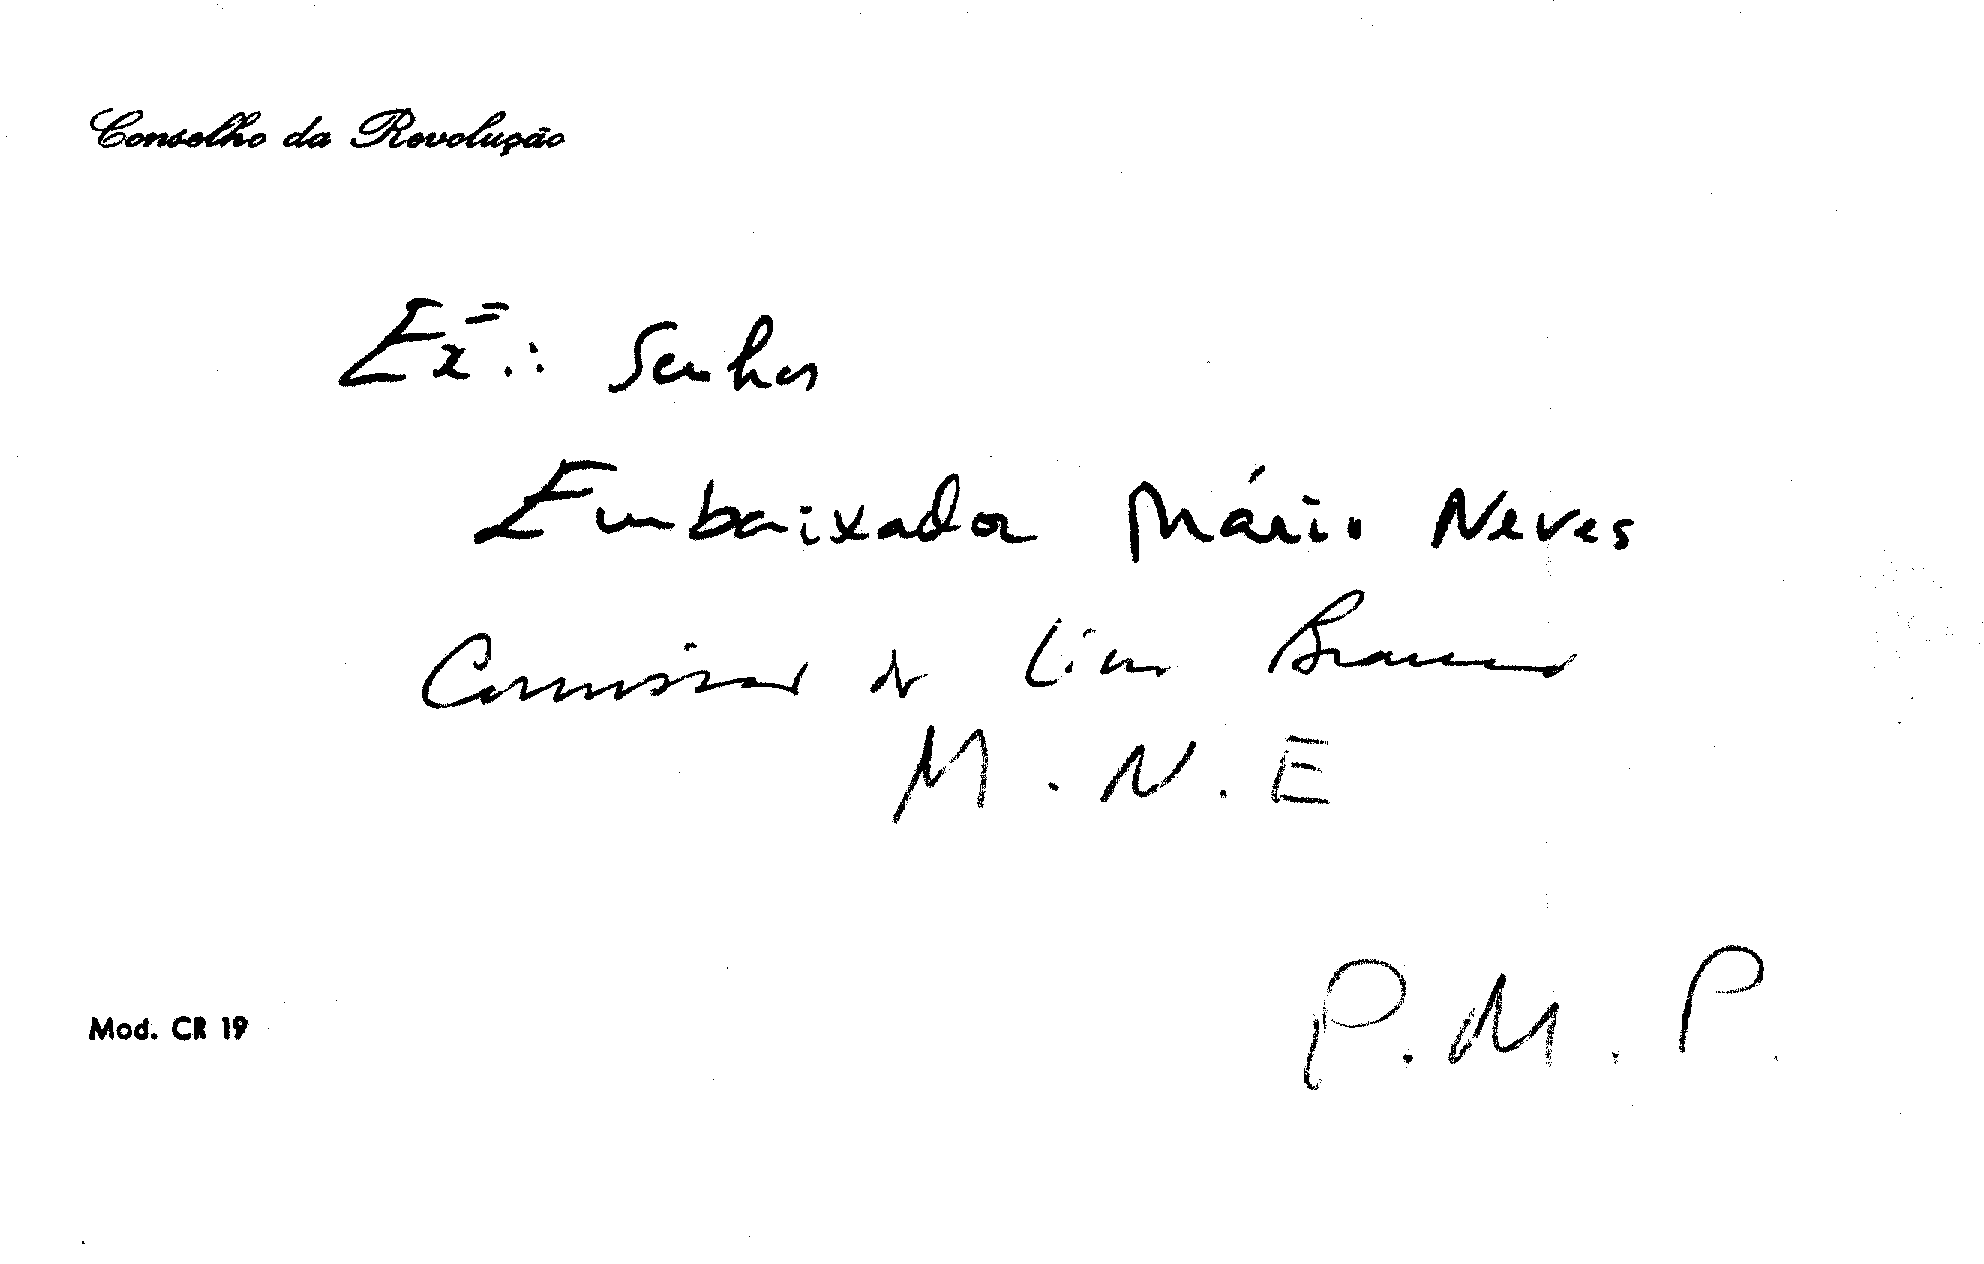 Conselho da Revolução
Exº.: Senhor
Embaixador Mário Neves
Comissão do Livro Branco
M.N.E
P.M.P.
Mod. CR 19